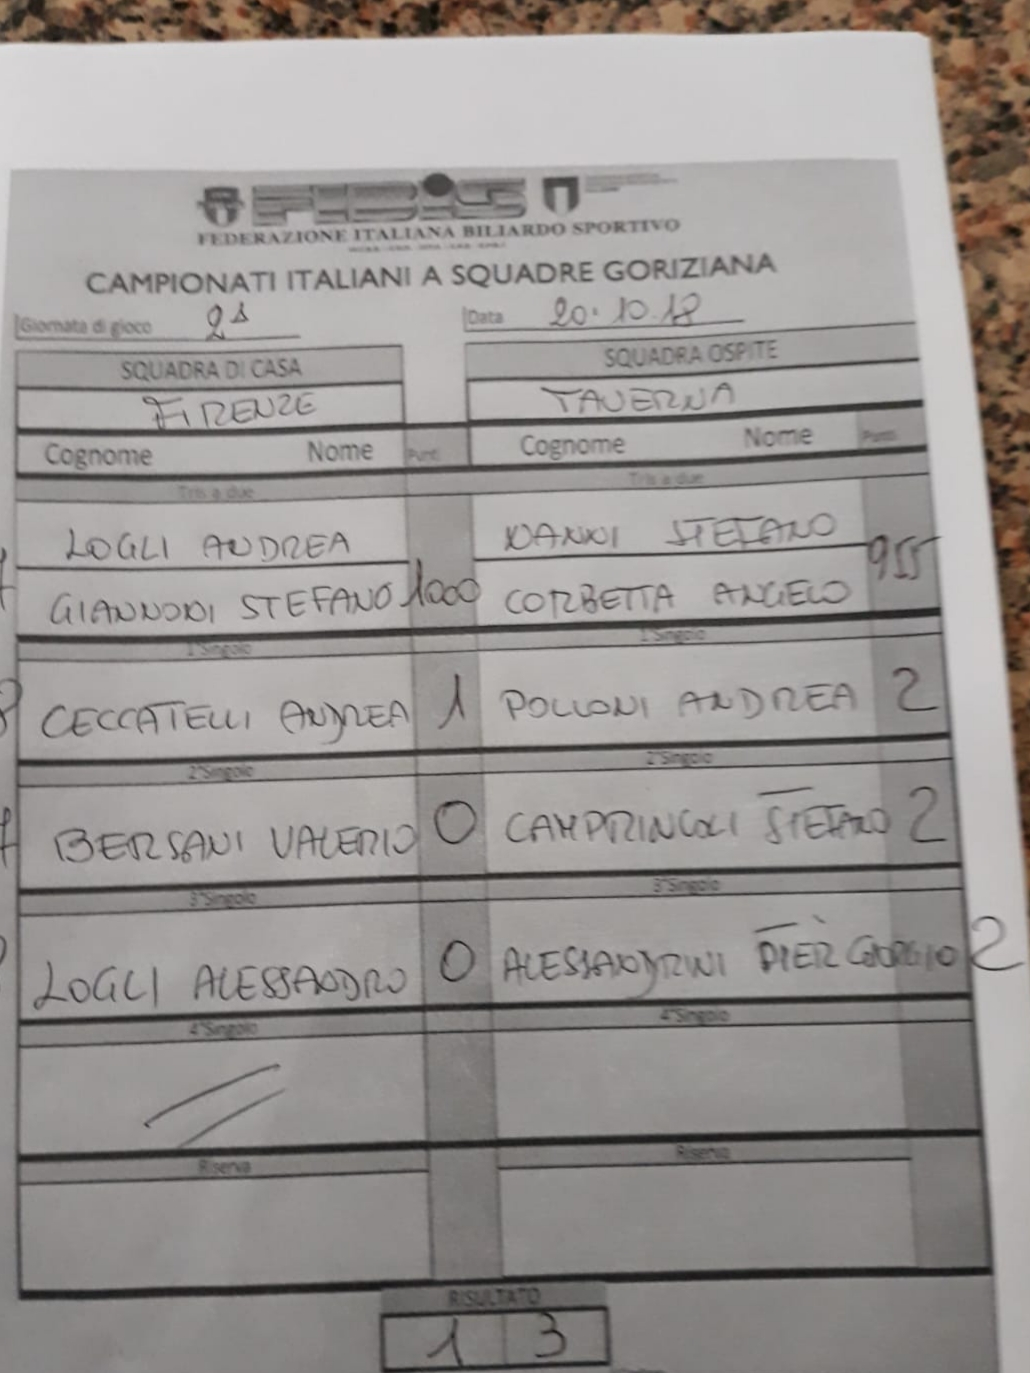 FIBIS
FEDERAZIONE ITALIANA BILIARDO SPORTIVO
CAMPIONATI ITALIANI A SQUADRE GORIZIANA
Giornata di gioco 2ª Data 20.10.18
SQUADRA DI CASA SQUADRA OSPITE
FIRENZE TAVERNA
Cognome Nome Punti Cognome Nome Punti
Tris a due Tris a due
LOGLI ANDREA NANNI STEFANO
GIANNONI STEFANO 1000 CORBETTA ANGELO 955
1°Singolo 1°Singolo
CECCATELLI ANDREA 1 POLLONI ANDREA 2
2°Singolo 2°Singolo
BERSANI VALERIO 0 CAMPRINCOLI STEFANO 2
3°Singolo 3°Singolo
LOGLI ALESSANDRO 0 ALESSANDRINI PIER GIORGIO 2
4°Singolo 4°Singolo
Riserva Riserva
RISULTATO
1 3